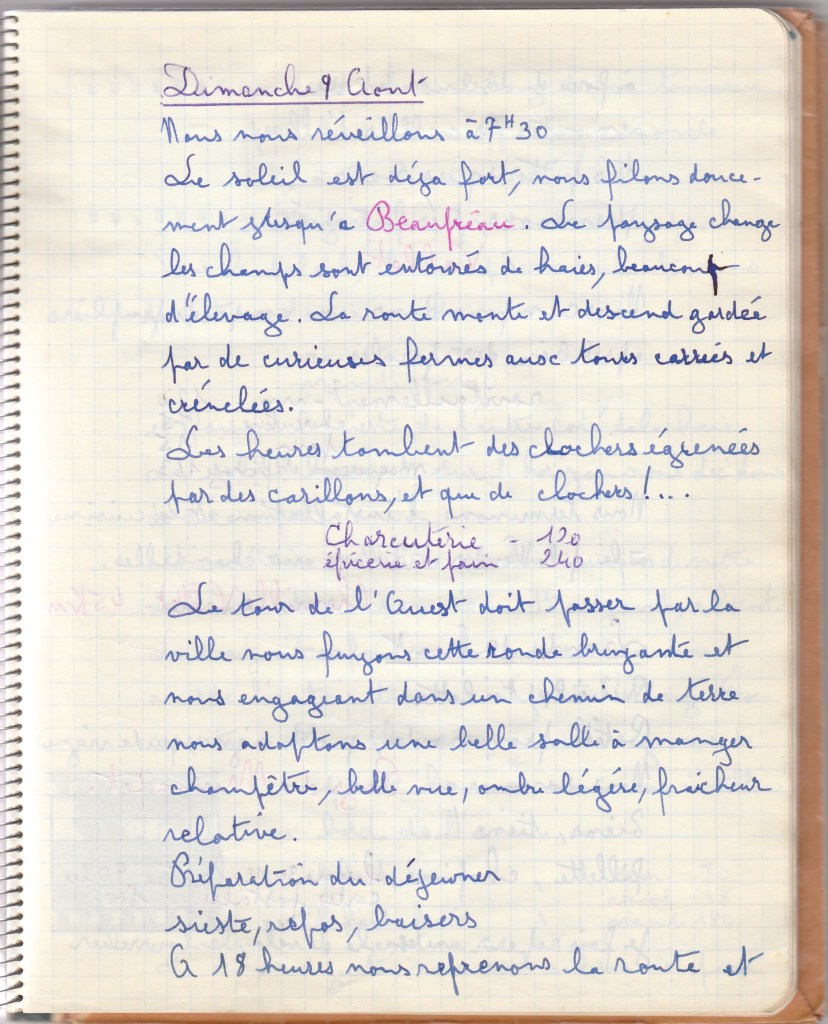 Dimanche 9 Aout
Nous nous réveillons à 7H30
Le soleil est déja fort, nous filons douce-
ment jusqu'a Beaupréau. Le paysage change
les champs sont entourés de haies, beaucoup
d'élevage. La route monte et descend gardée
par de curieuses fermes aux tours carrées et
crénelées.
Les heures tombent des clochers égrenées
par des carillons, et que de clochers !...
Charcuterie - 120
épicerie et pain 240
Le tour de l'Ouest doit passer par la
ville nous fuyons cette ronde bruyante et
nous engageant dans un chemin de terre
nous adoptons une belle salle à manger
champêtre, belle vue, ombre légère, fraîcheur
relative.
Préparation du déjeuner
sieste, repos, baisers
A 18 heures nous reprenons la route et